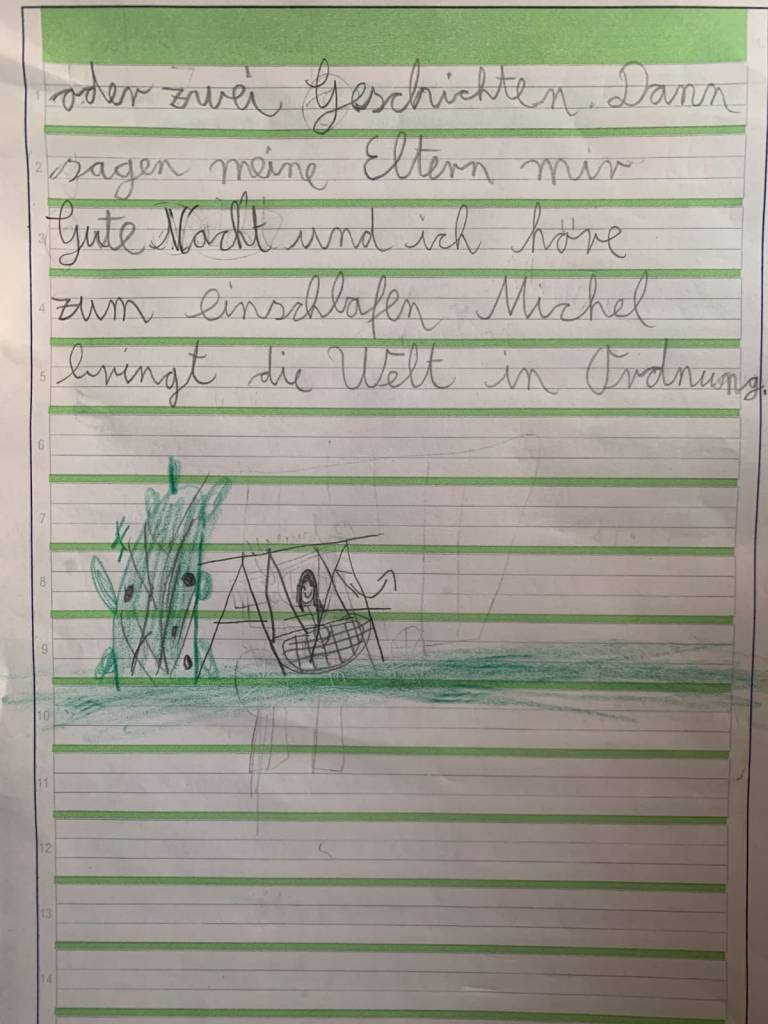 oder zwei Geschichten. Dann
sagen meine Eltern mir
Gute Nacht und ich höre
zum einschlafen Michel
bringt die Welt in Ordnung.
1
2
3
4
5
6
7
8
9
10
11
12
13
14